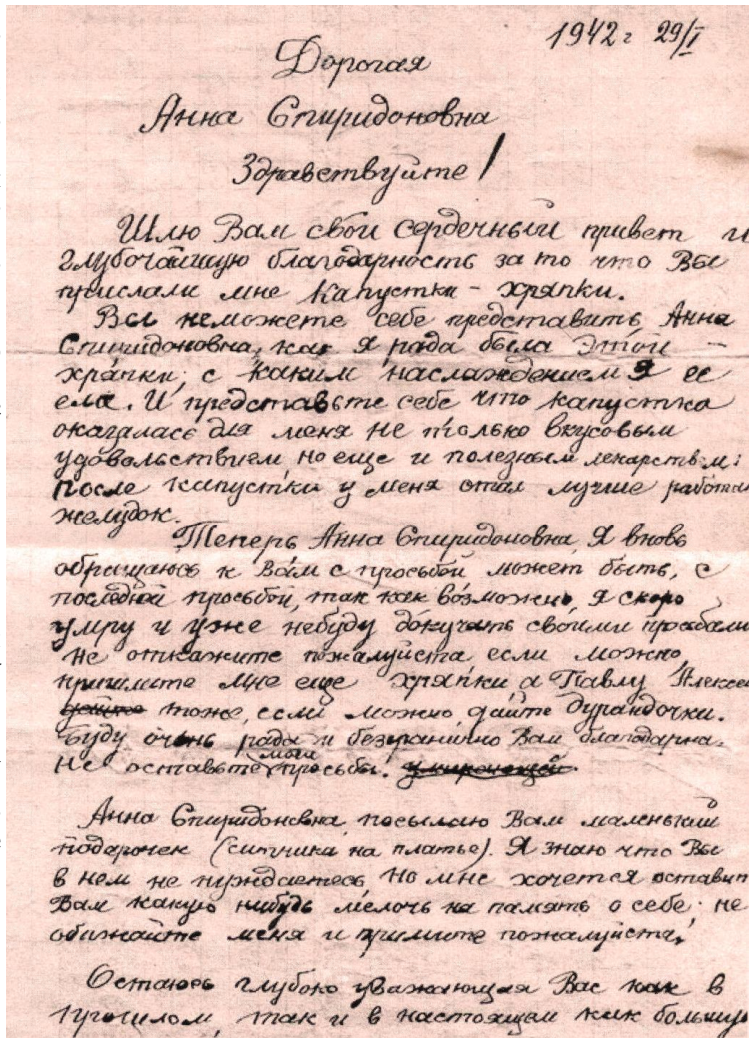 1942 г 29/I
Дорогая
Анна Спиридоновна
Здравствуйте!
Шлю Вам свой сердечный привет и
глубочайшую благодарность за то что Вы
прислали мне капустки - хряпки.
Вы неможете себе представить Анна
Спиридоновна, как я рада была этой -
хряпки, с каким наслаждением я ее
ела. И представьте себе что капустка
оказалась для меня не только вкусовым
удовольствием но еще и полезным лекарством:
после капустки у меня стал лучше работа
желудок.
Теперь Анна Спиридоновна Я вновь
обращаюсь к Вам с просьбой может быть, с
последней просьбой, так как возможно, я скоро
умру и уже небуду докучать своими просьбами
не откажите пожалуйста если можно,
пришлите мне еще хряпки а Павлу Алексее
тоже, если можно, дайте дурандочки.
Буду очень рада и безгранично Вам благодарна.
Не оставьте мои просьбы. умирающей
Анна Спиридоновна, посылаю Вам маленький
подарочек (ситчика на платье). Я знаю что Вы
в нем не нуждаетесь, но мне хочется оставит
Вам какую нибудь мелочь на память о себе; не
обижайте меня и примите пожалуйста!
Остаюсь глубоко уважающая Вас как в
прошлом, так и в настоящем как большую